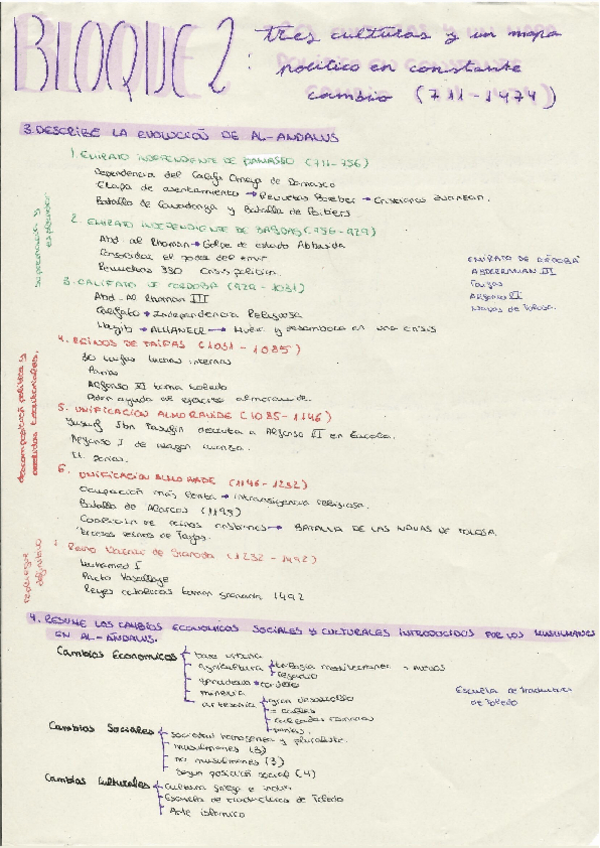 BLOQUE 2: tres culturas y un mapa
político en constante
cambio (711-1474)
3. DESCRIBE LA EVOLUCIÓN DE AL-ANDALUS
1. EMIRATO INDEPENDIENTE DE DAMASCO (711-756)
Dependencia del Califa Omeya de Damasco
Etapa de asentamiento → Revueltas Bereber →
Batalla de Covadonga y Batalla de Poitiers
2. EMIRATO INDEPENDIENTE DE BAGDAD (756-929)
Abd. al Rhaman → Golpe de estado Abbasida
Consolidar el poder del emir
Revueltas 330 Crisis política.
3. CALIFATO D CÓRDOBA (929-1031)
Abd-Al Rhaman III
Califato → Independencia Religiosa
Hayib → ALMANZOR → Muere y desemboca en una crisis
supremacía y
esplendor
EMIRATO DE CÓRDOBA
ABDERRAMAN III
Taifas
Alfonso VI
Navas de Tolosa.
4. REINOS DE TAIFAS (1031-1085)
30 taifas luchas internas
Parias
Alfonso VI toma toledo
Piden ayuda al ejército almoravide.
5. UNIFICACIÓN ALMORAVIDE (1085-1146)
Yusuf Ibn Tasufin derrota a Alfonso VI en
Alfonso I de Aragon
II
6. UNIFICACIÓN ALMOHADE (1146-1232)
Ocupación más lenta → intransigencia religiosa.
Batalla de Alarcos (1195)
Coalición de reinos cristianos → BATALLA DE LAS NAVAS DE TOLOSA.
Terceros reinos de Taifas.
descomposición política y
perdidas territoriales.
7. Reino Nazarí de Granada (1232-1492)
Muhamed I
Pacto Vasallaje
Reyes catolicos toman granada 1492
repliegue
definitivo
4. RESUME LOS CAMBIOS ECONOMICOS SOCIALES Y CULTURALES INTRODUCIDOS POR LOS MUSULMANES
EN AL-ANDALUS.
Cambios Economicos
base urbana
agricultura
trilogía mediterranea → nuevos
regadío
ganadería → cordero
mineria
artesanía
gran desarrollo
Escuela de traductores
de Toledo
Cambios Sociales
sociedad homogenea y pluralista.
musulmanes (3)
no musulmanes (3)
Según posición social (4)
Cambios Culturales
Cultura griega e india
Escuela de traductores de Toledo
Arte islamico